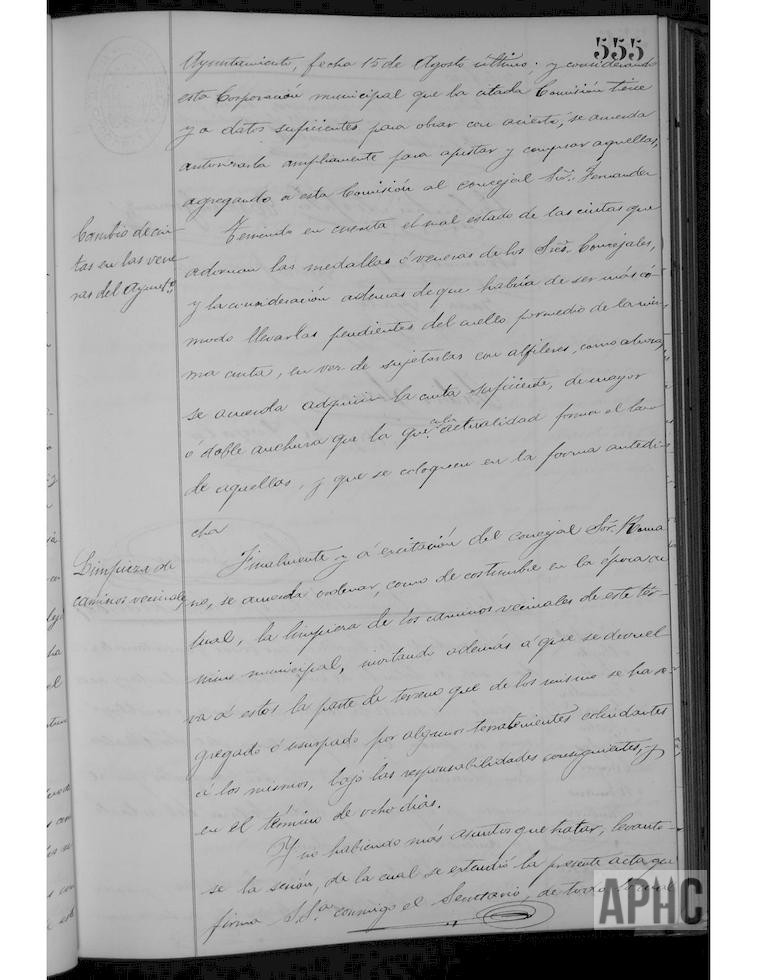 555
Ayuntamiento, fecha 15 de Agosto último. y considerando
esta Corporación municipal que la citada Comisión tiene
ya datos suficientes para obrar con acierto, se acuerda
autorizarla ampliamente para ajustar y comprar aquellas,
agregando a esta Comisión al concejal Sor. Fernandez
Cambio de cin-
tas en las vene-
ras del Ayuntº.
Teniendo en cuenta el mal estado de las cintas que
adornan las medallas ó veneras de los Sres. Concejales,
y la consideración ademas de que habría de ser más có-
modo llevarlas pendientes del cuello por medio de la mis-
ma cinta, en vez de sujetarlas con alfileres, como ahora,
se acuerda adquirir la cinta suficiente, de mayor
ó doble anchura que la que en la actualidad forma el lazo
de aquellas, y que se coloquen en la forma antedi-
cha
Limpieza de
caminos vecinales
Finalmente y á excitación del concejal Sor. Roma
no, se acuerda ordenar, como de costumbre en la época ac
tual, la limpieza de los caminos vecinales de este tér-
mino municipal, invitando además a que se devuel
va á estos la parte de terreno que de los mismo se ha se-
gregado ó usurpado por algunos terratenientes colindantes
á los mismos, bajo las responsabilidades consiguientes, y
en el término de ocho dias.
Y no habiendo más asuntos que tratar, levanto-
se la sesión, de la cual se extendió la presente acta que
firma S.Sª. conmigo el Secretario, de todo lo cual
APHC